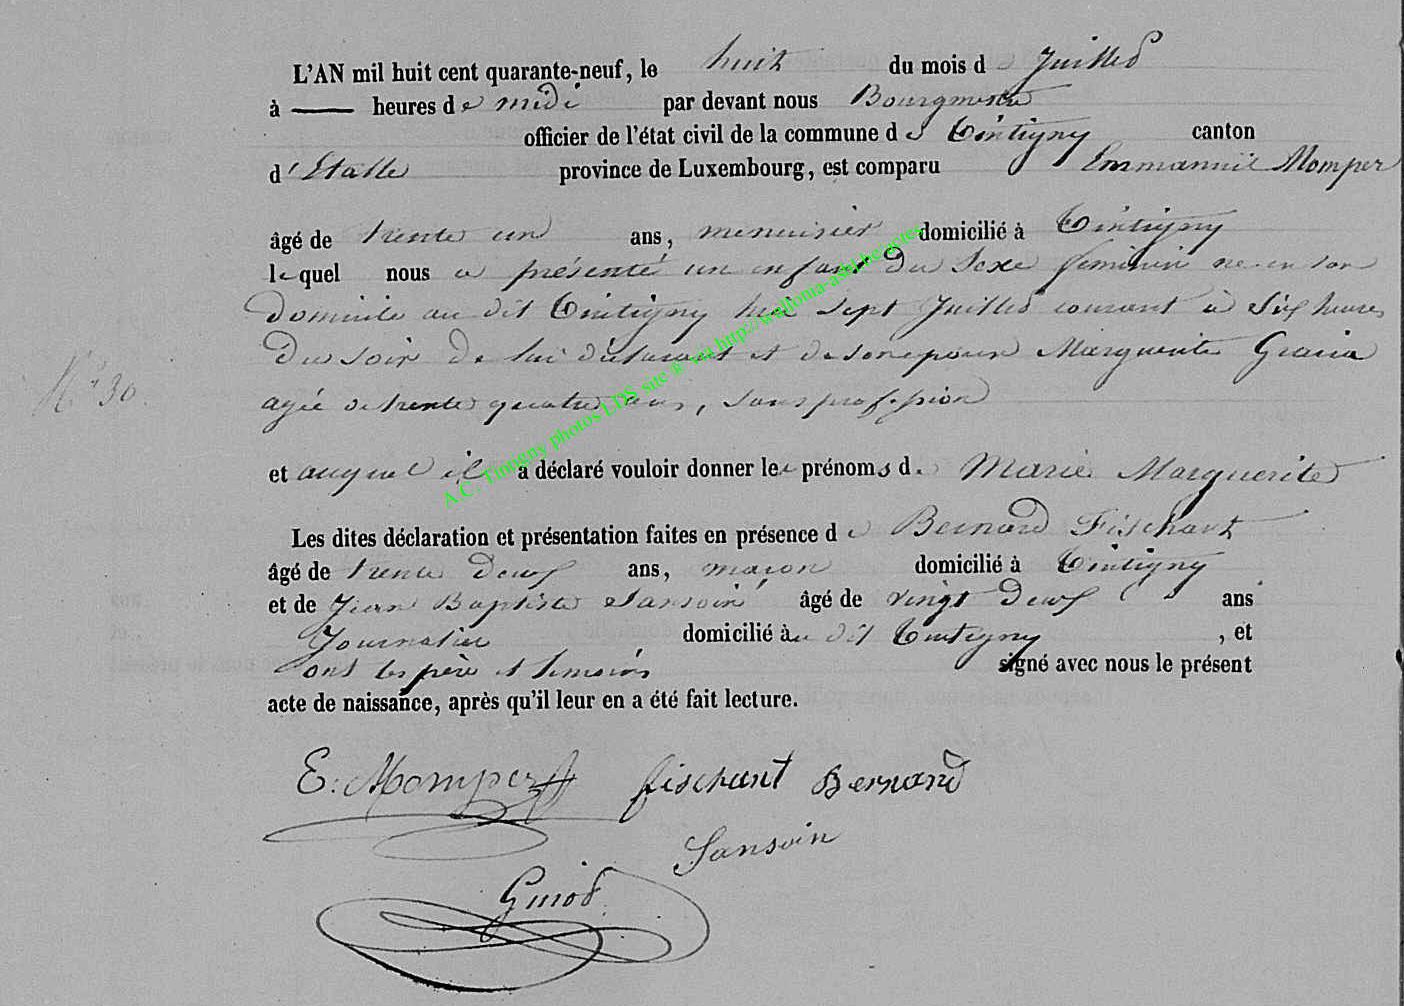 L'AN mil huit cent quarante-neuf, le huit du mois de Juillet
à — heures de midi par devant nous Bourgmestre
officier de l'état civil de la commune de Tintigny canton
d'Etalle province de Luxembourg, est comparu Emmanuel Momper
âgé de trente un ans, menuisier domicilié à Tintigny
lequel nous a présenté un enfant du Sexe féminin né en son
domicile au dit Tintigny hier sept Juillet courant à Six heures
Du soir De lui déclarant et de son epouse Marguerite
N° 30.
agée de trente quatre ans, sans profession
et auquel il a déclaré vouloir donner les prénoms de Marie Marguerite
Les dites déclaration et présentation faites en présence de Bernard Fischant
âgé de trente Deux ans, maçon domicilié à Tintigny
et de Jean Baptiste Sansoin âgé de vingt Deux ans
Journalier domicilié au dit Tintigny , et
ont les père et témoins signé avec nous le présent
acte de naissance, après qu'il leur en a été fait lecture.
E. Momper fischant Bernard
Sansoin
A.C. Tintigny photos LDS site ® via http://walloma-asbl.be/actes